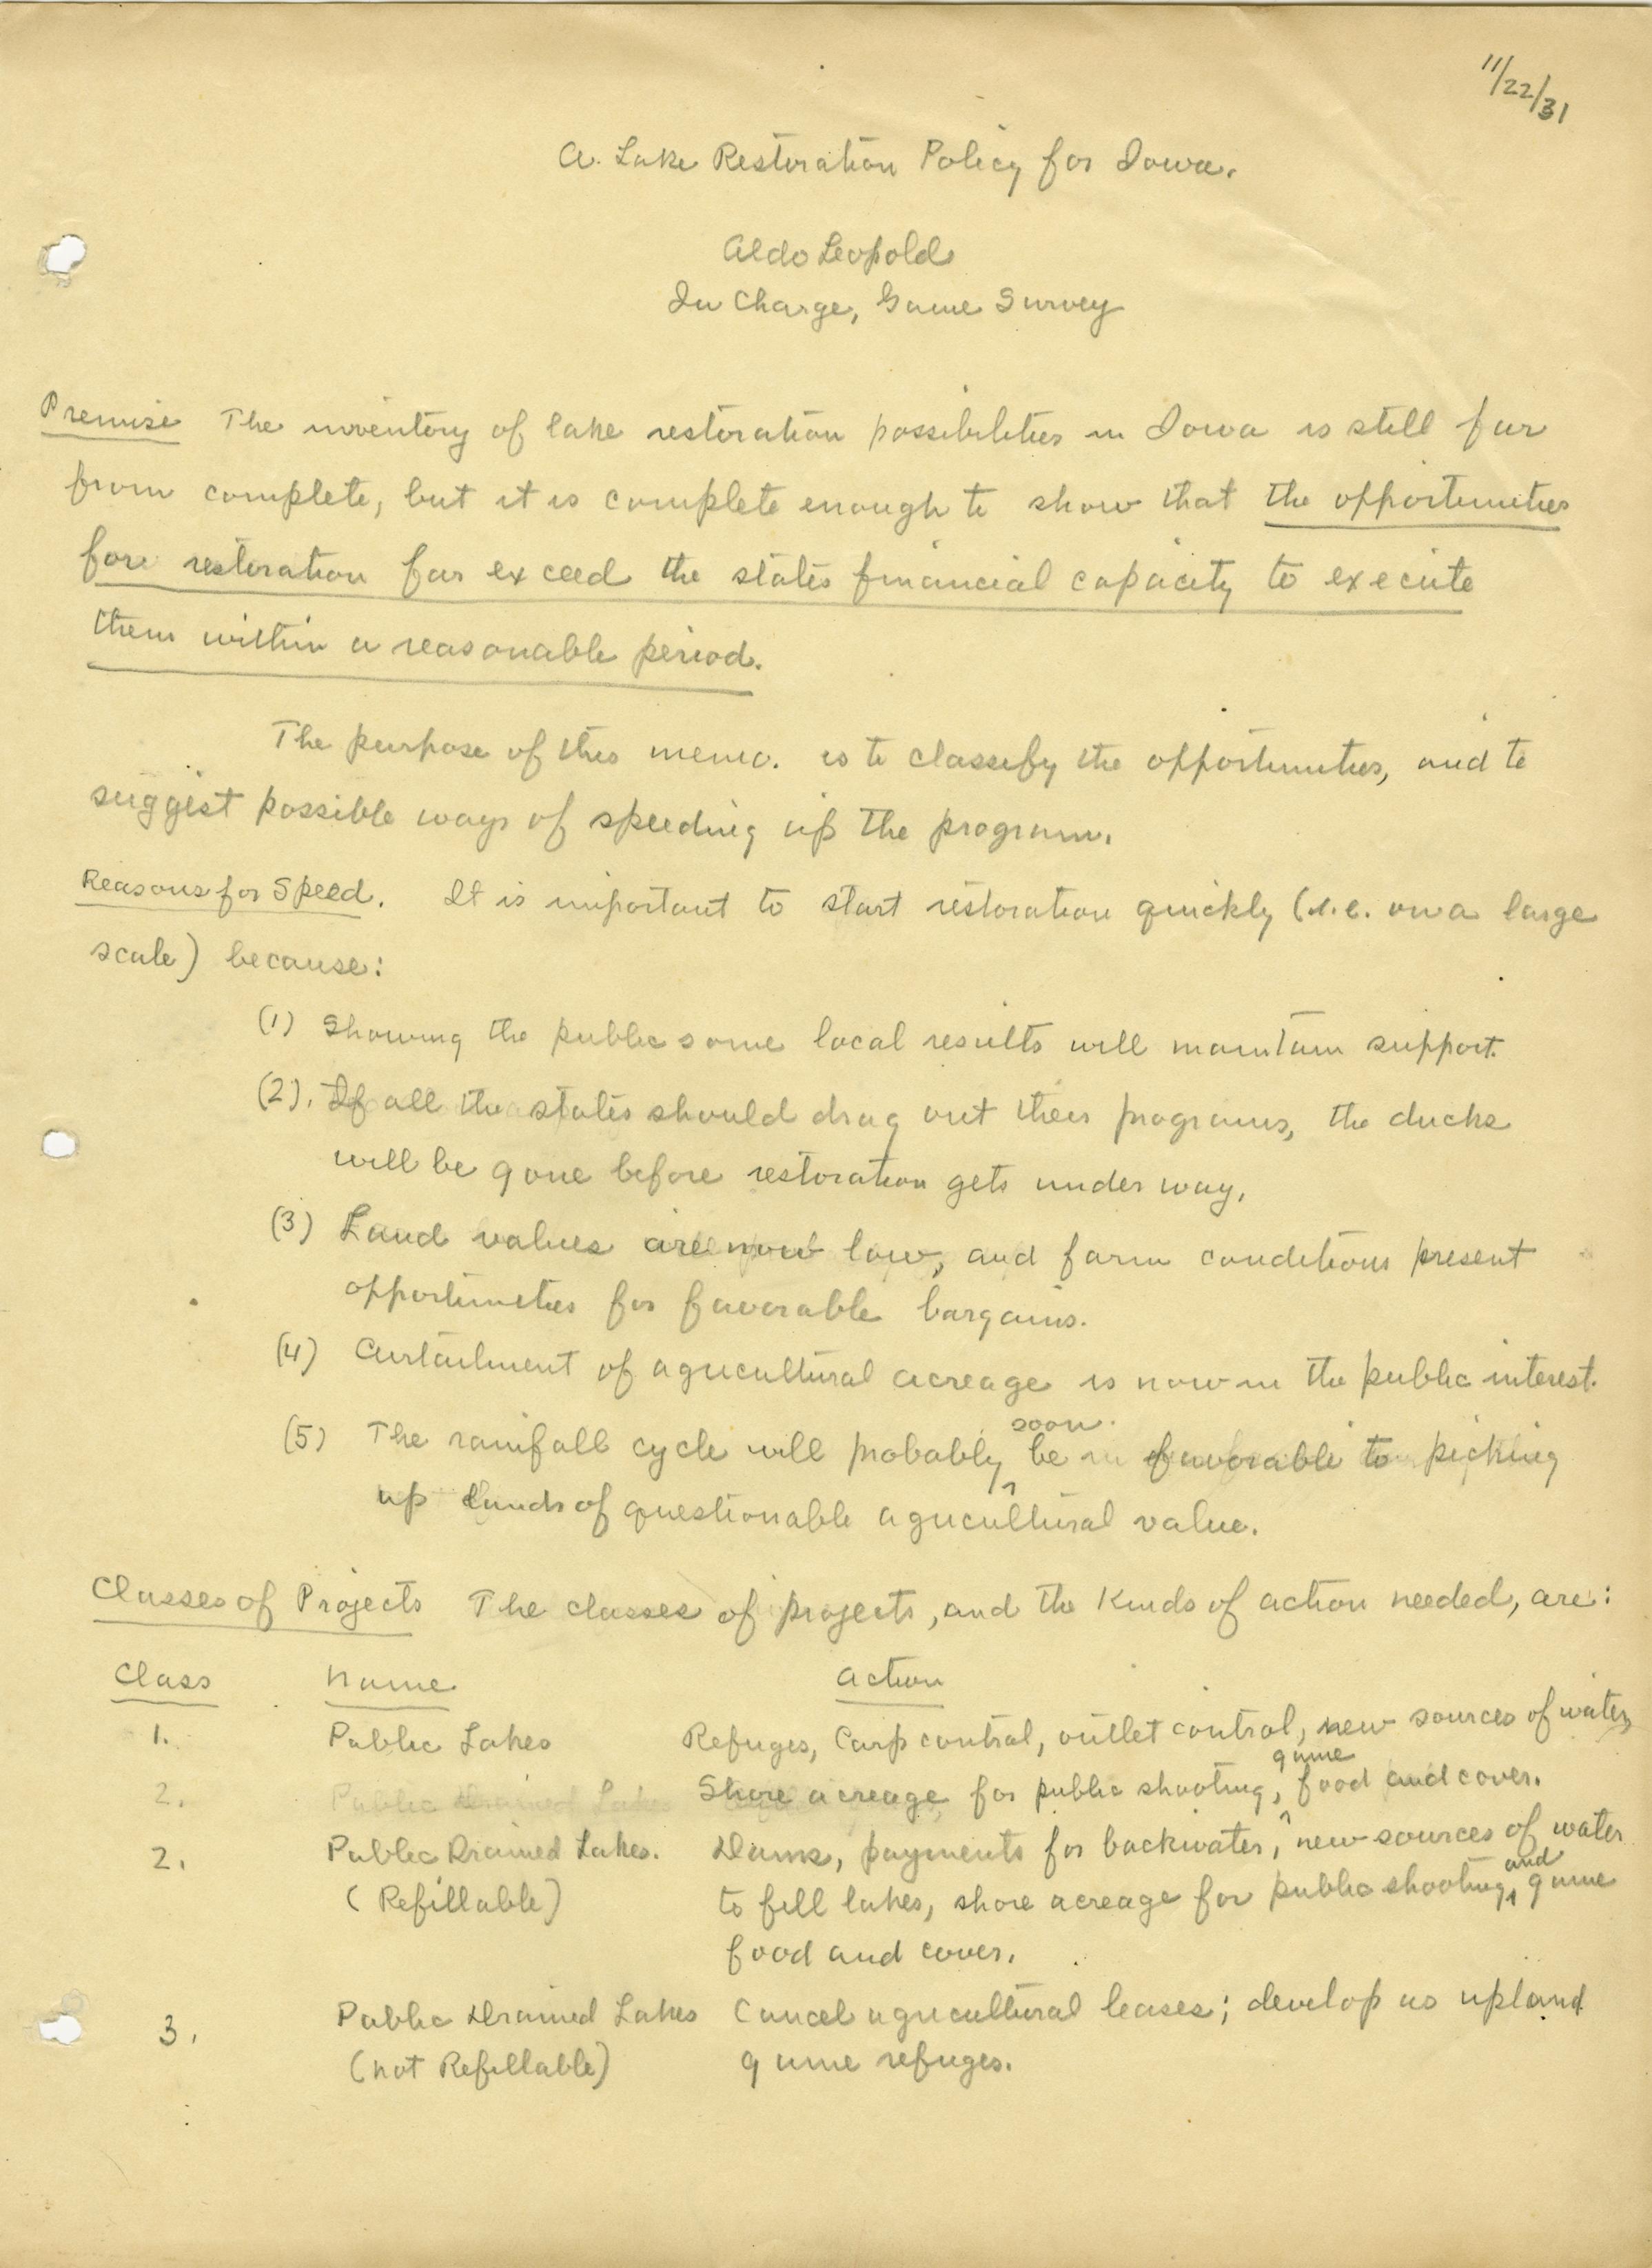 11/22/31
A Lake Restoration Policy for Iowa.
Aldo Leopold
In Charge, Game Survey
Premise The inventory of lake restoration possibilities in Iowa is still far
from complete, but it is complete enough to show that the opportunities
for restoration far exceed the states financial capacity to execute
them within a reasonable period.
The purpose of this memo. is to classify the opportunities, and to
suggest possible ways of speeding up the program.
Reasons for Speed. It is important to start restoration quickly (i.e. on a large
scale) because:
(1) Showing the public some local results will maintain support.
(2). If all the states should drag out their programs, the ducks
will be gone before restoration gets under way.
(3) Land values are now low, and farm conditions present
opportunities for favorable bargains.
(4) Curtailment of agricultural acreage is now in the public interest.
(5) The rainfall cycle will probably soon be favorable to picking
up lands of questionable agricultural value.
Classes of Projects The classes of projects, and the kinds of action needed, are:
Class Name Action
1. Public Lakes Refuges, Carp control, outlet control, new sources of water,
2. Public Drained Lakes Shore acreage for public shooting, game food and cover.
2. Public Drained Lakes. Dams, payments for backwater, new sources of water
(Refillable) to fill lakes, shore acreage for public shooting and game
food and cover.
3. Public Drained Lakes Cancel agricultural leases; develop as upland
(not Refillable) game refuges.